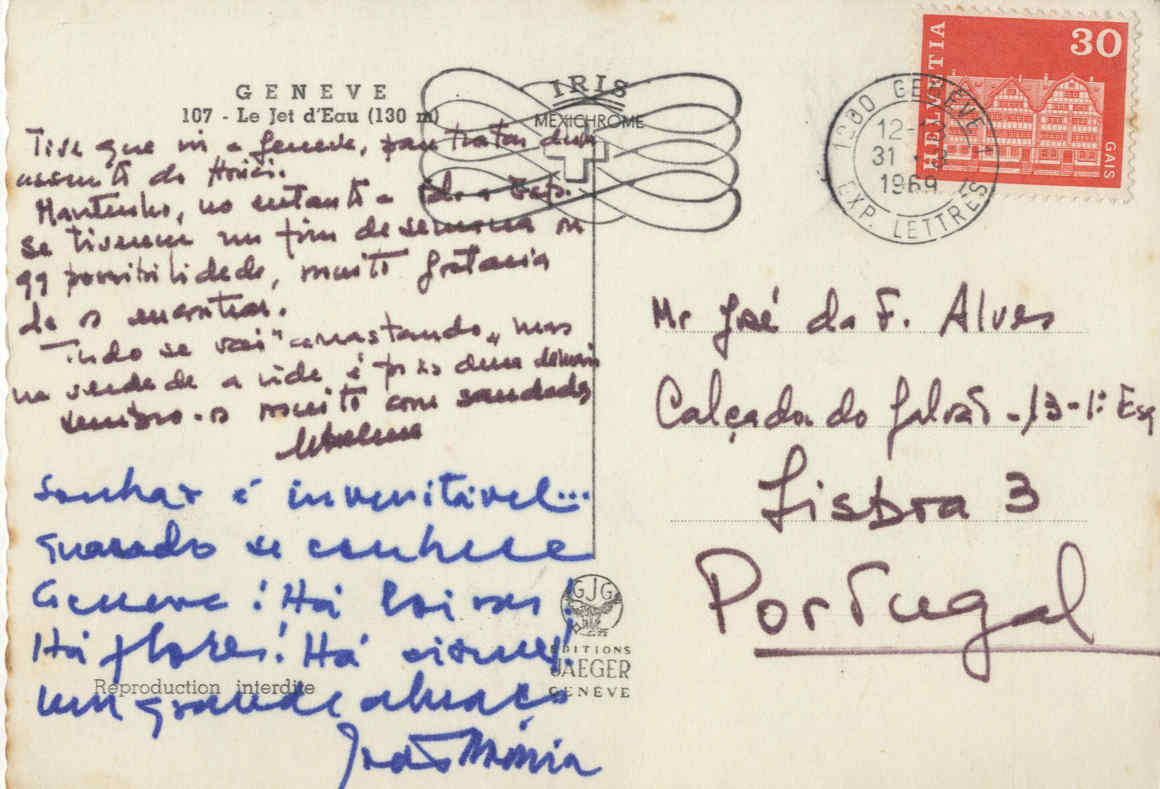 GENEVE
107 - Le Jet d'Eau (130 m)
IRIS
MEXICHROME
HELVETIA
30
GAIS
1200 GENEVE 1
12-
31
1969
EXP. LETTRES
Tive que vir a Geneve, para tratar dum
assunto do
Mantenho, no entanto
se tiverem um fim de semana ou
qq possibilidade, muito gostaria
de os encontrar.
Tudo se vai "arrastando", mas
na verdade a vida é
lembro-os muito com saudades
Sonhar é inevitável...
quando se conhece
Geneve! Há
Há flores! Há cisnes!
um grande abraço
Mr José da F. Alves
Calçada do Galvão - 13 - 1º Esq
Lisboa 3
Portugal
GJG
EDITIONS
JAEGER
GENÈVE
Reproduction interdite